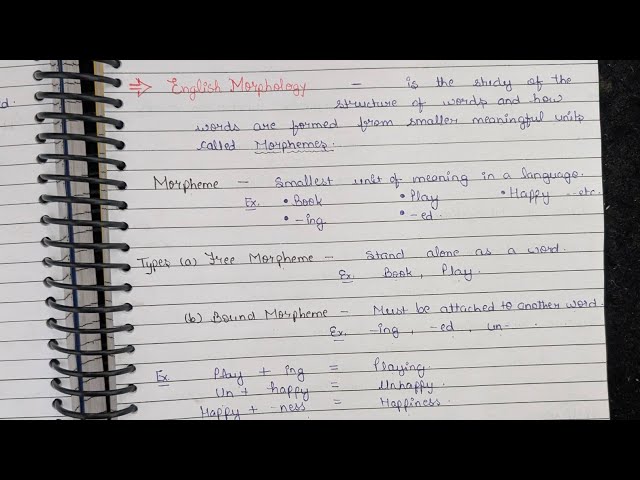 ⇒ English Morphology – is the study of the
structure of words and how
words are formed from smaller meaningful units
called Morphemes.
Morpheme – Smallest unit of meaning in a language.
Ex. • Book • Play • Happy ..etc.
• -ing • -ed.
Types (a) Free Morpheme – Stand alone as a word.
Ex. Book, Play.
(b) Bound Morpheme – Must be attached to another word.
Ex. -ing, -ed, un-
Ex. Play + ing = Playing.
Un + happy = Unhappy.
Happy + -ness = Happiness.